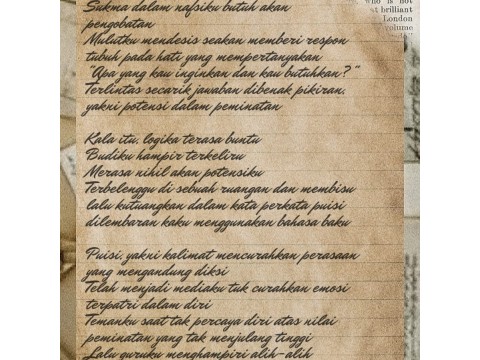 Sukma dalam nafsiku butuh akan
pengobatan
Mulutku mendesis seakan memberi respon
tubuh pada hati yang mempertanyakan
"Apa yang kau inginkan dan kau butuhkan?"
Terlintas secarik jawaban dibenak pikiran,
yakni potensi dalam peminatan
Kala itu, logika terasa buntu
Budiku hampir terkeliru
Merasa nihil akan potensiku
Terbelenggu di sebuah ruangan dan membisu
lalu kutuangkan dalam kata perkata puisi
dilembaran kaku menggunakan bahasa baku
Puisi, yakni kalimat mencurahkan perasaan
yang mengandung diksi
Telah menjadi mediaku tuk curahkan emosi
terpatri dalam diri
Temanku saat tak percaya diri atas nilai
peminatan yang tak menjulang tinggi
Lalu guruku menghampiri alih-alih
who is not
brilliant
London
volume